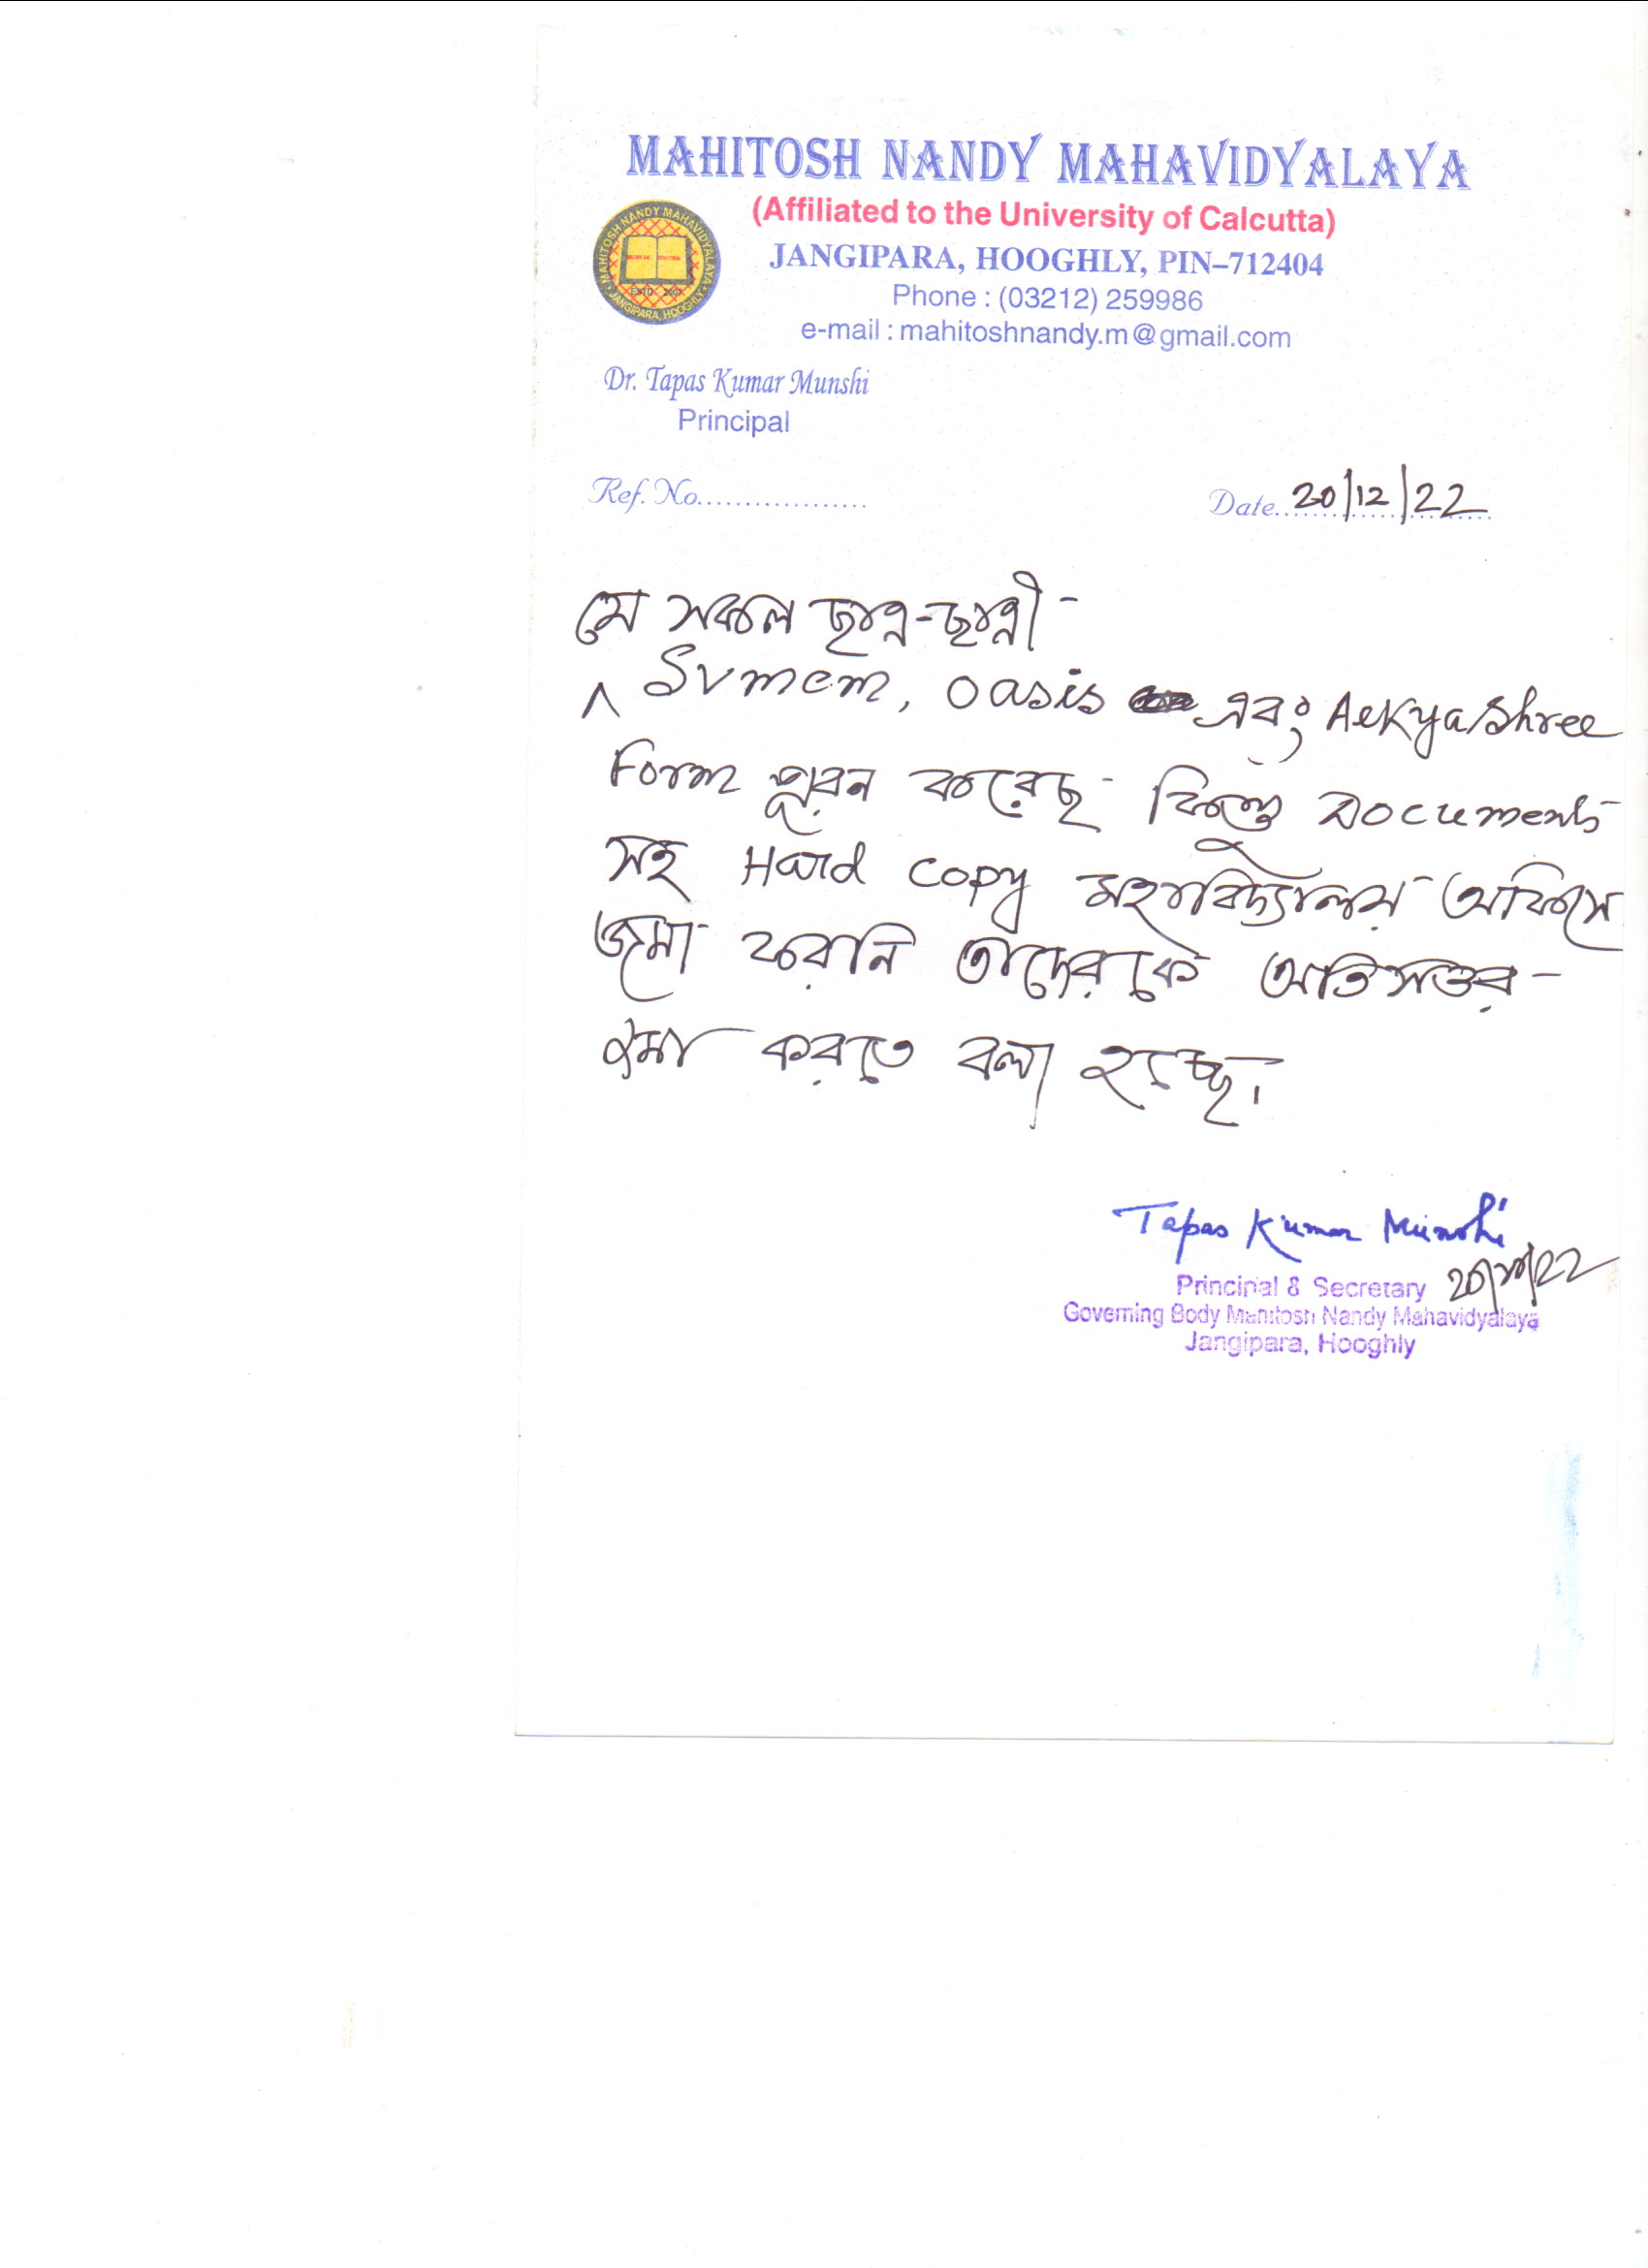 MAHITOSH NANDY MAHAVIDYALAYA
(Affiliated to the University of Calcutta)
JANGIPARA, HOOGHLY, PIN–712404
Phone : (03212) 259986
e-mail : mahitoshnandy.m@gmail.com
MAHITOSH NANDY MAHAVIDYALAYA
ESTD. 2007
JANGIPARA, HOOGHLY
Dr. Tapas Kumar Munshi
Principal
Ref. No..................
Date. 20/12/22
যে সকল ছাত্র-ছাত্রী
^ Svmcm, Oasis এবং Aekyashree
Form পূরন করেছে কিন্তু Documents
সহ Hard copy মহাবিদ্যালয় অফিসে
জমা করনি তাদেরকে অতিসত্তর
জমা করতে বলা হচ্ছে।
Tapas Kumar Munshi
20/12/22
Principal & Secretary
Governing Body Mahitosh Nandy Mahavidyalaya
Jangipara, Hooghly